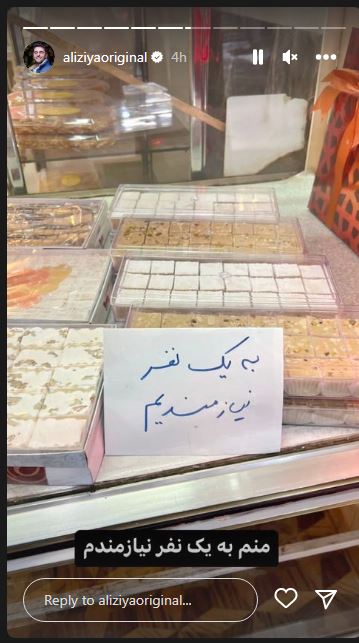 aliziyaoriginal 4h
به یک نفر
نیازمندیم
منم به یک نفر نیازمندم
Reply to aliziyaoriginal...